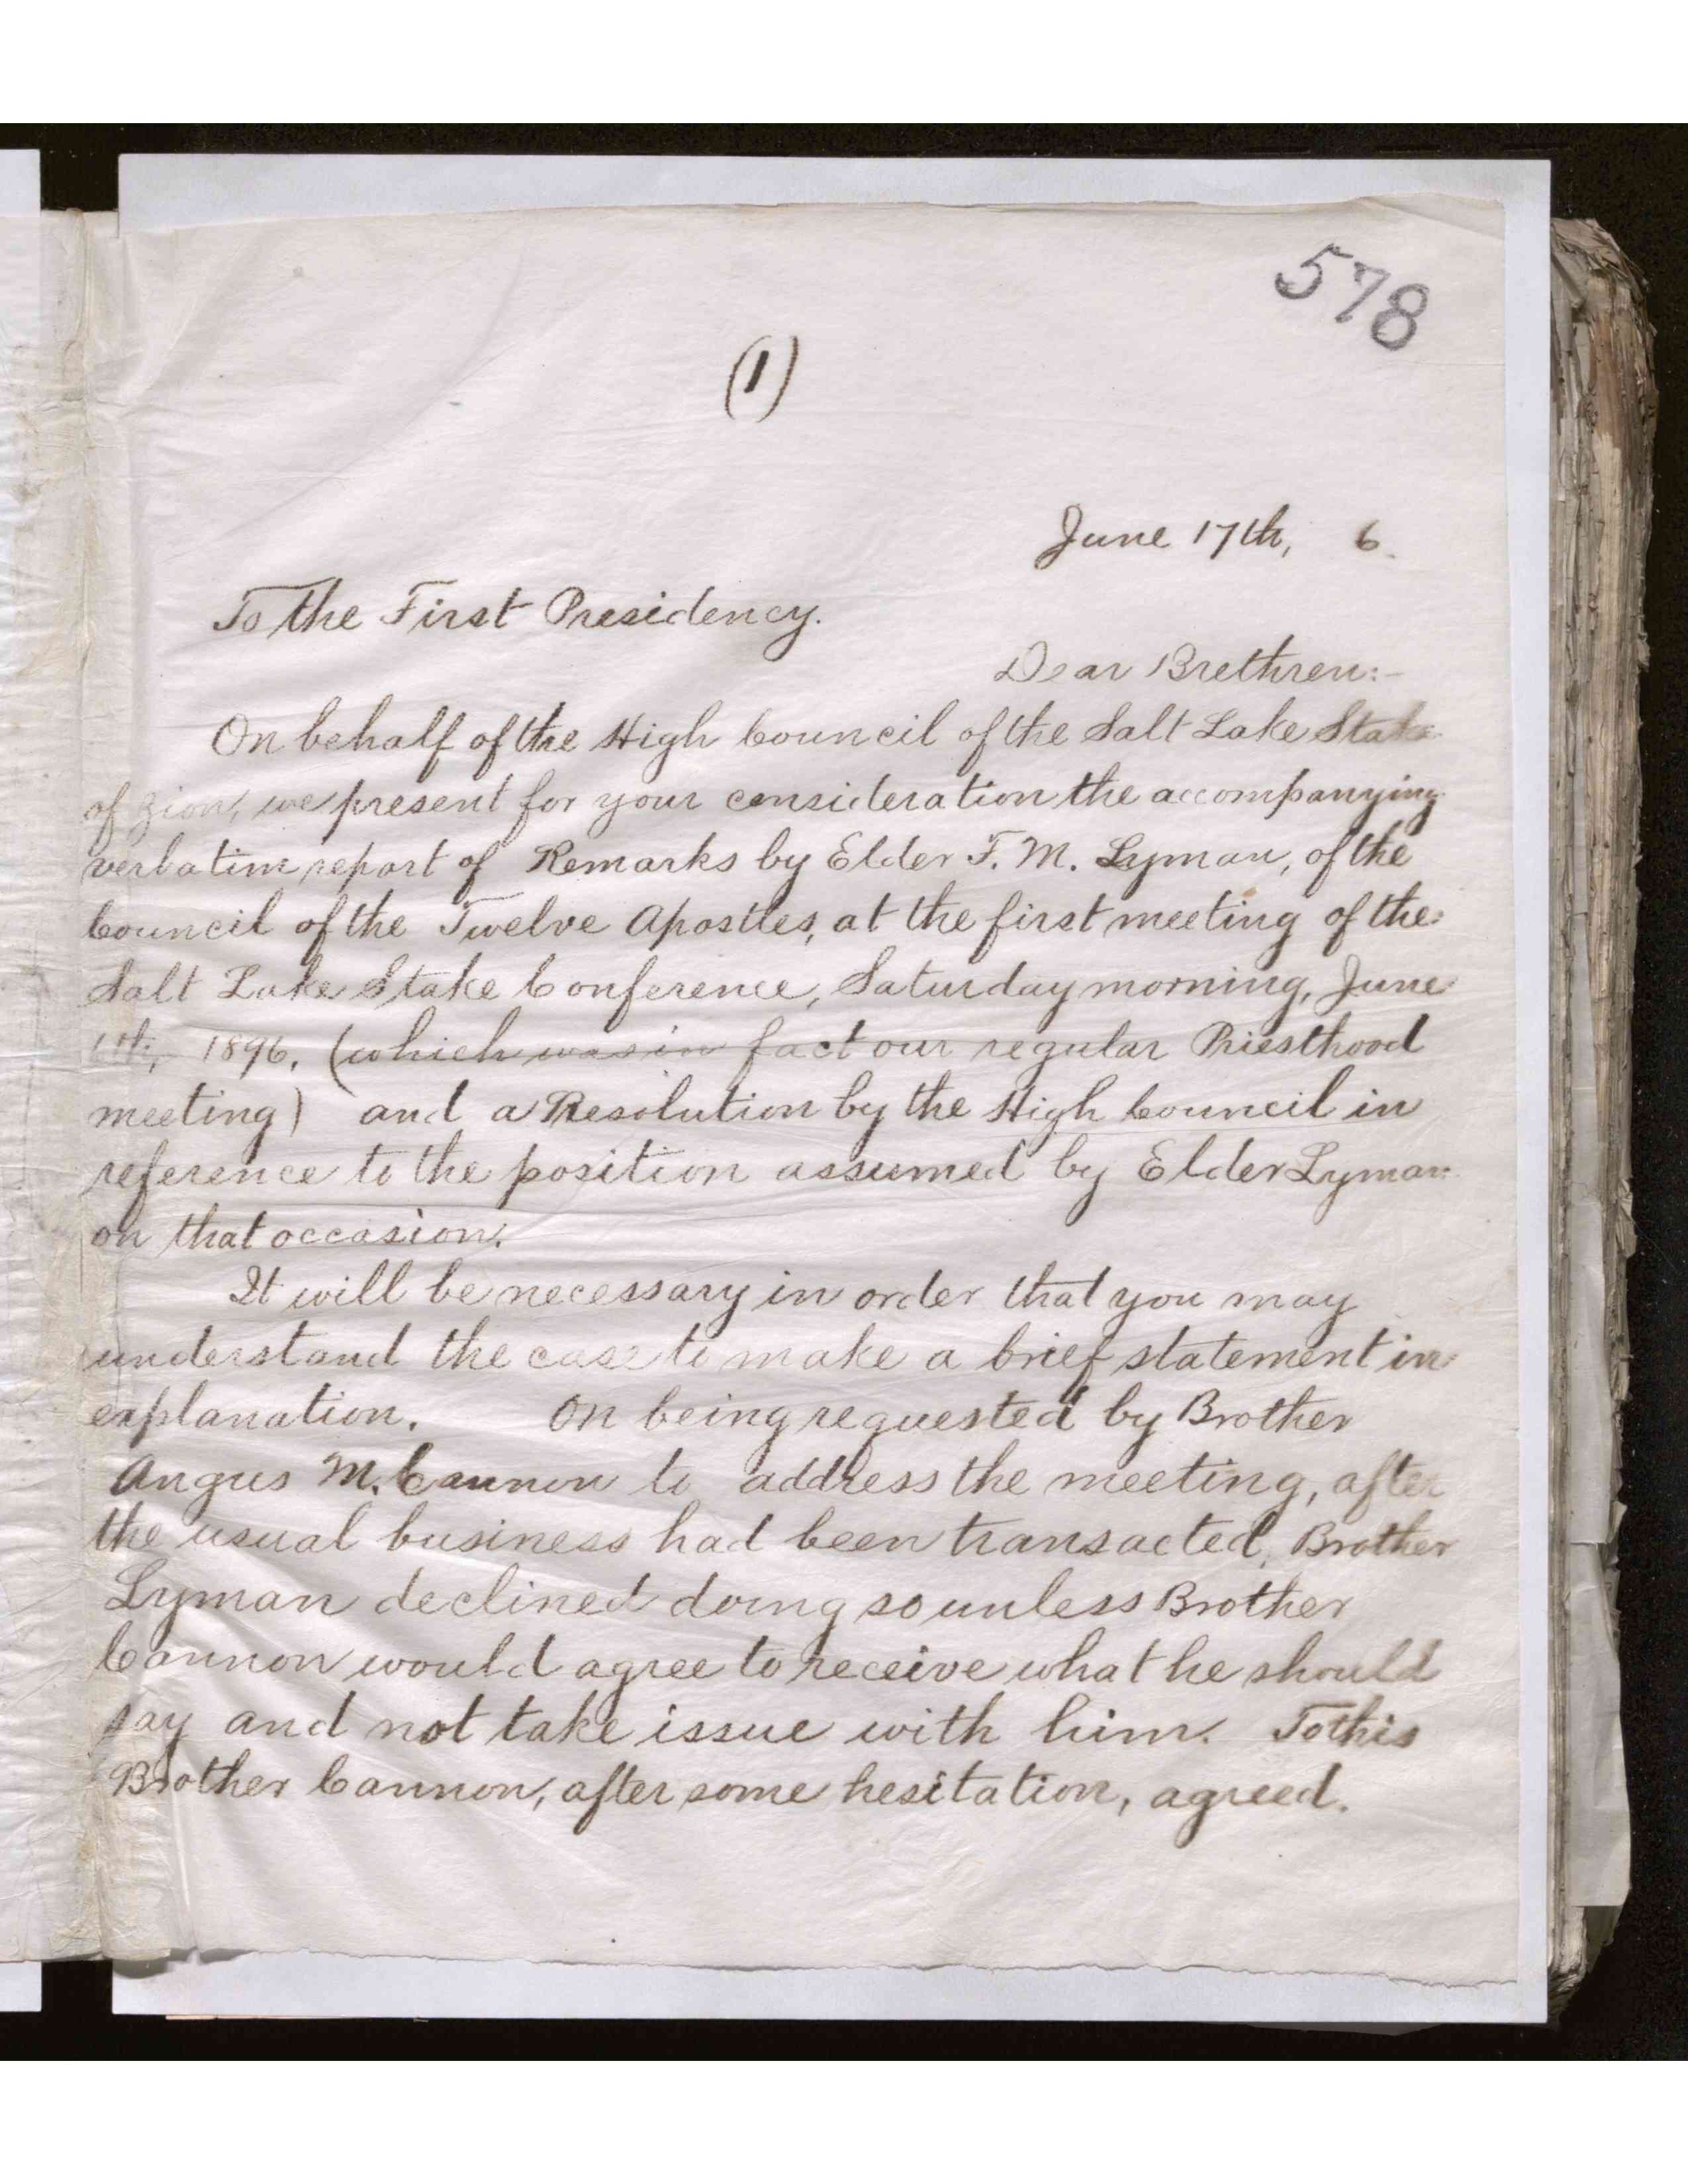 578
(1)
June 17th, 6.
To the First Presidency.
Dear Brethren:-
On behalf of the High Council of the Salt Lake Stake
of Zion, we present for your consideration the accompanying
verbatim report of Remarks by Elder F. M. Lyman, of the
Council of the Twelve Apostles, at the first meeting of the
Salt Lake Stake Conference, Saturday morning, June
1896. (which was in fact our regular Priesthood
meeting) and a Resolution by the High Council in
reference to the position assumed by Elder Lyman
on that occasion.
It will be necessary in order that you may
understand the case to make a brief statement in
explanation. On being requested by Brother
Angus M. Cannon to address the meeting, after
the usual business had been transacted, Brother
Lyman declined doing so unless Brother
Cannon would agree to receive what he should
say and not take issue with him. To this
Brother Cannon, after some hesitation, agreed.